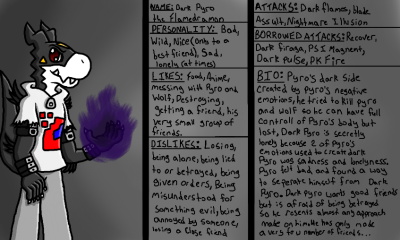 NAME: Dark Pyro
the Flamedramon
PERSONALITY: Bad,
Wild, Nice (only to a
best friend), Sad,
lonely (at times)
LIKES: Food, Anime,
messing with Pyro and
Wolf, Destroying,
getting a friend, his
very small group of
friends.
DISLIKES: Losing,
being alone, being lied
to or betrayed, being
given orders, Being
misunderstood for
something evil, being
annoyed by someone,
losing a close friend
ATTACKS: Dark flames, blade
Assult, Nightmare Illusion
BORROWED ATTACKS: Recover,
Dark firaga, PSI Magnent,
Dark pulse, PK Fire
BIO: Pyro's dark side
created by pyro's negative
emotions, he tried to kill pyro
and wolf so he can have full
controll of Pyro's body but
lost, Dark Pyro is secretly
lonely because 2 of Pyro's
Emotions used to create dark
Pyro was sadness and lonelyness,
Pyro felt bad, and found a way
to seperate himself from Dark
Pyro. Dark Pyro wants good friends
but is afraid of being betrayed
so he resents almost any approach
made on him. He has only made
a very few number of friends...